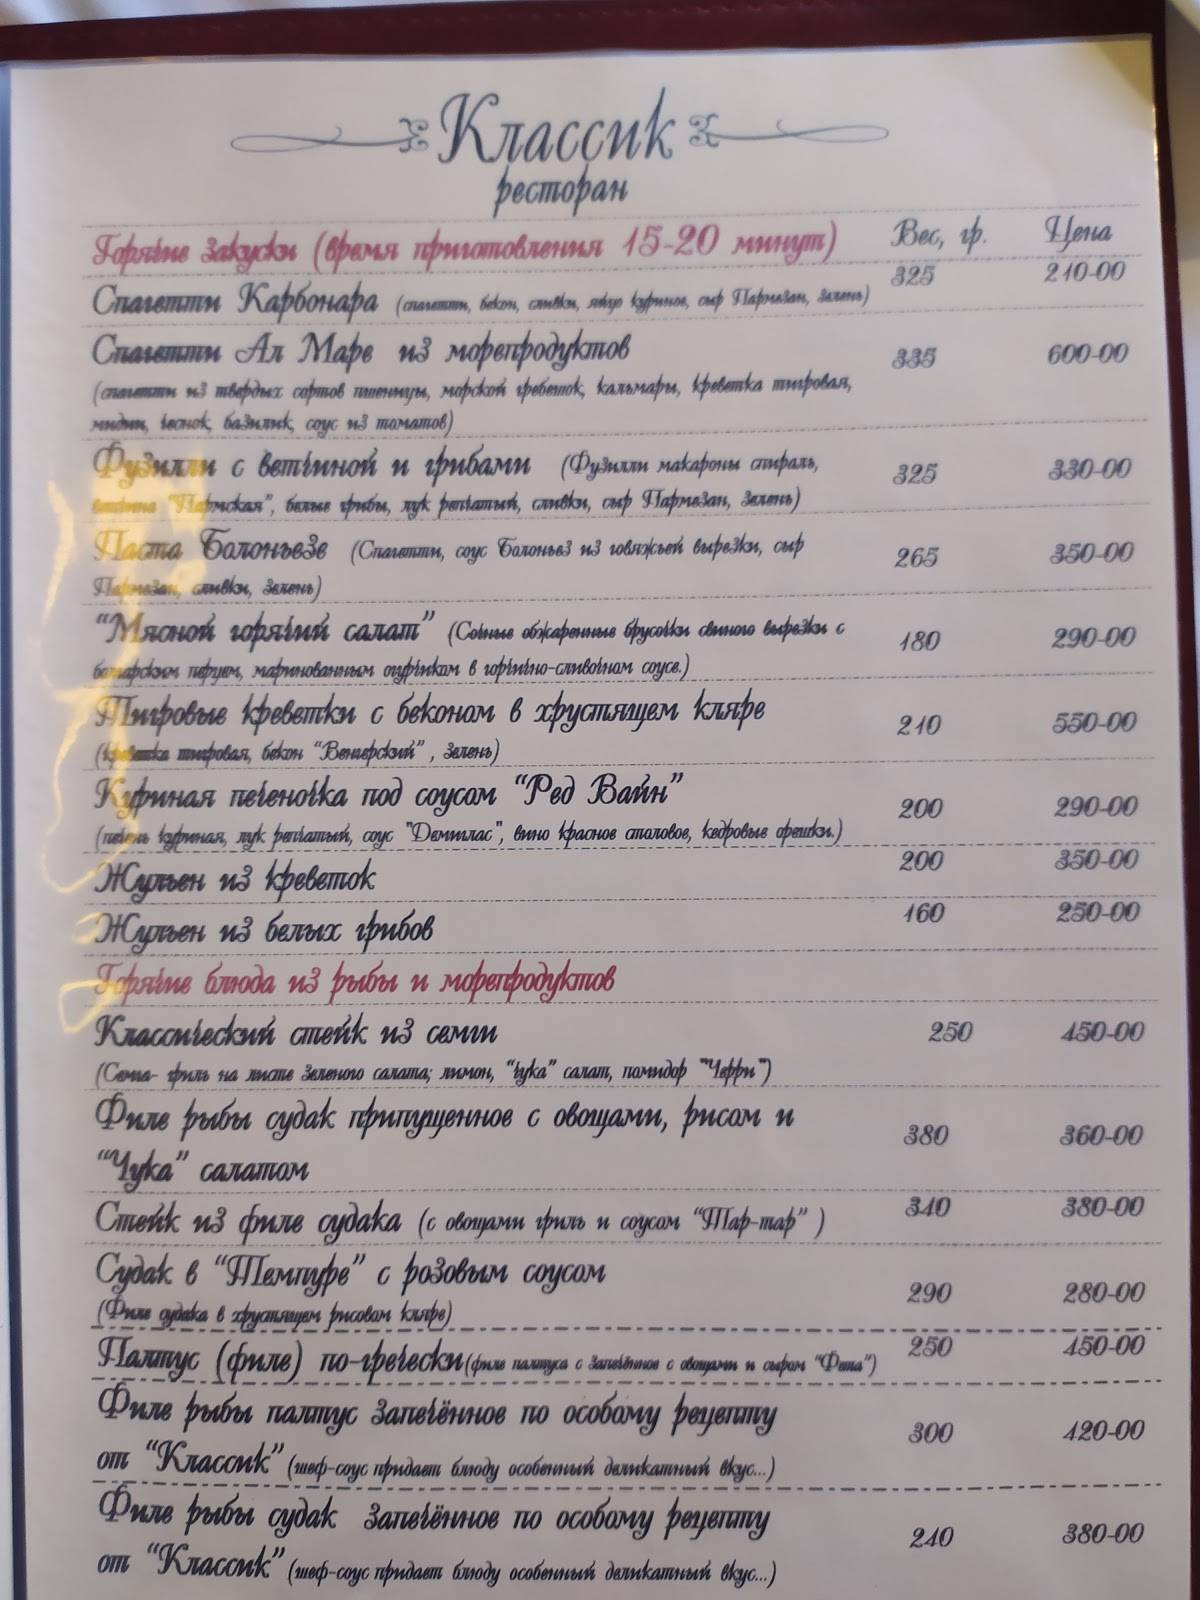 Классик
ресторан
Горячие закуски (время приготовления 15-20 минут) Вес, гр. Цена
Спагетти Карбонара (спагетти, бекон, сливки, яйцо куриное, сыр Пармезан, зелень) 325 210-00
Спагетти Ал Маре из морепродуктов 335 600-00
(спагетти из твердых сортов пшеницы, морской гребешок, кальмары, креветка тигровая,
мидии, чеснок, базилик, соус из томатов)
Фузилли с ветчиной и грибами (Фузилли макароны спираль, 325 330-00
ветчина "Пармская", белые грибы, лук репчатый, сливки, сыр Пармезан, зелень)
Паста Болоньезе (Спагетти, соус Болоньез из говяжьей вырезки, сыр 265 350-00
Пармезан, сливки, зелень)
"Мясной горячий салат" (Сочные обжаренные брусочки свиного вырезки с 180 290-00
болгарским перцем, маринованным огурчиком в горчично-сливочном соусе.)
Тигровые креветки с беконом в хрустящем кляре 210 550-00
(креветка тигровая, бекон "Венгерский" , зелень)
Куриная печеночка под соусом "Ред Вайн" 200 290-00
(печень куриная, лук репчатый, соус "Демиглас", вино красное столовое, кедровые орешки.)
Жульен из креветок 200 350-00
Жульен из белых грибов 160 250-00
Горячие блюда из рыбы и морепродуктов
Классический стейк из семги 250 450-00
(Семга- гриль на листе зеленого салата; лимон, "Чука" салат, помидор "Черри")
Филе рыбы судак припущенное с овощами, рисом и 380 360-00
"Чука" салатом
Стейк из филе судака (с овощами гриль и соусом "Тар-тар" ) 340 380-00
Судак в "Темпуре" с розовым соусом 290 280-00
(Филе судака в хрустящем рисовом кляре)
Палтус (филе) по-гречески (филе палтуса с запечённое с овощами и сыром "Фета") 250 450-00
Филе рыбы палтус запечённое по особому рецепту 300 420-00
от "Классик" (шеф-соус придает блюду особенный деликатный вкус...)
Филе рыбы судак запечённое по особому рецепту 240 380-00
от "Классик" (шеф-соус придает блюду особенный деликатный вкус...)